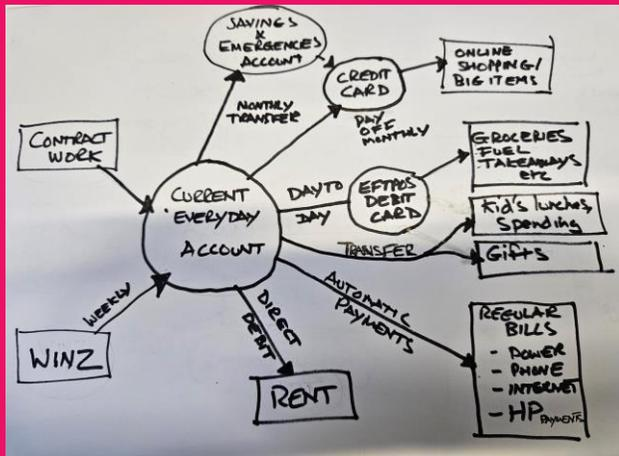 SAVINGS
&
EMERGENCES
ACCOUNT
CREDIT
CARD
ONLINE
SHOPPING/
BIG ITEMS
MONTHLY
TRANSFER
PAY
OFF
MONTHLY
CONTRACT
WORK
CURRENT
EVERYDAY
ACCOUNT
DAY TO
DAY
EFTPOS
DEBIT
CARD
GROCERIES
FUEL
TAKEAWAYS
etc
Kid's lunches,
Spending
TRANSFER
Gifts
WEEKLY
WINZ
DIRECT
DEBIT
RENT
AUTOMATIC
PAYMENTS
REGULAR
BILLS
- POWER
- PHONE
- INTERNET
- HP PAYMENTS